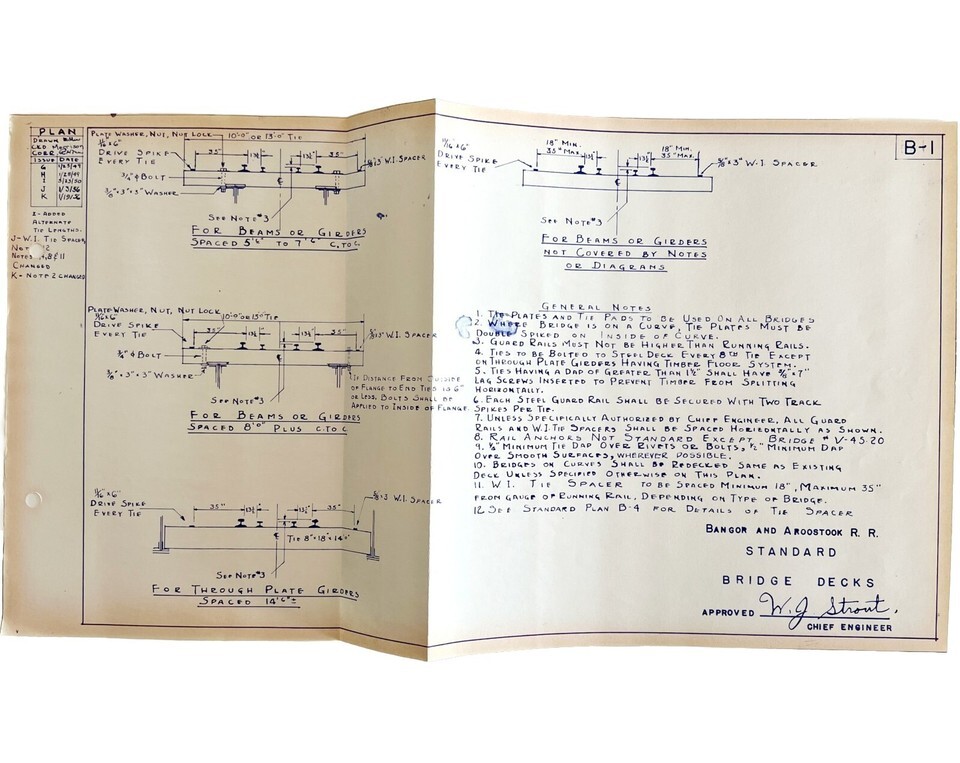 PLAN
DRAWN
CKD
CORR.
ISSUE DATE
G 1/23/49
H 1/28/49
I 5/23/50
J 1/3/56
K 1/19/56
I-ADDED
ALTERNATE
TIE LENGTHS.
J-W.I. TIE SPACER,
12
NOTES 8 & 11
CHANGED
K-NOTE 2 CHANGED
PLATE WASHER, NUT, NUT LOCK
10'-0" OR 13'-0" TIE
DRIVE SPIKE
EVERY TIE
35"
13½"
13½"
35"
W.I. SPACER
3/4" Φ BOLT
3/8" × 3" × 3" WASHER
SEE NOTE #3
FOR BEAMS OR GIRDERS
SPACED 5'6" TO 7'6" C. TO C.
PLATE WASHER, NUT, NUT LOCK
10'-0" OR 13'-0" TIE
DRIVE SPIKE
EVERY TIE
35"
13½"
13½"
35"
W.I. SPACER
3/4" Φ BOLT
3/8" × 3" × 3" WASHER
SEE NOTE #3
IF DISTANCE FROM OUTSIDE
OF FLANGE TO END TIE IS 6"
OR LESS, BOLTS SHALL BE
APPLIED TO INSIDE OF FLANGE.
FOR BEAMS OR GIRDERS
SPACED 8'0" PLUS C. TO C
DRIVE SPIKE
EVERY TIE
35"
13½"
13½"
35"
W.I. SPACER
TIE 8" × 18" × 14'-0"
SEE NOTE #3
FOR THROUGH PLATE GIRDERS
SPACED 14'6" ±
B-1
11/16" × 6"
DRIVE SPIKE
EVERY TIE
18" MIN.
35" MAX.
13½"
13½"
18" MIN.
35" MAX.
3/8" × 3" W.I. SPACER
SEE NOTE #3
FOR BEAMS OR GIRDERS
NOT COVERED BY NOTES
OR DIAGRAMS
GENERAL NOTES
1. TIE PLATES AND TIE PADS TO BE USED ON ALL BRIDGES
2. WHERE BRIDGE IS ON A CURVE, TIE PLATES MUST BE
DOUBLE SPIKED ON INSIDE OF CURVE.
3. GUARD RAILS MUST NOT BE HIGHER THAN RUNNING RAILS.
4. TIES TO BE BOLTED TO STEEL DECK EVERY 8TH TIE EXCEPT
ON THROUGH PLATE GIRDERS HAVING TIMBER FLOOR SYSTEM.
5. TIES HAVING A DAP OF GREATER THAN 1½" SHALL HAVE
LAG SCREWS INSERTED TO PREVENT TIMBER FROM SPLITTING
HORIZONTALLY.
6. EACH STEEL GUARD RAIL SHALL BE SECURED WITH TWO TRACK
SPIKES PER TIE.
7. UNLESS SPECIFICALLY AUTHORIZED BY CHIEF ENGINEER, ALL GUARD
RAILS AND W.I. TIE SPACERS SHALL BE SPACED HORIZONTALLY AS SHOWN.
8. RAIL ANCHORS NOT STANDARD EXCEPT BRIDGE # V-45.20
9. ¼" MINIMUM TIE DAP OVER RIVETS OR BOLTS, ½" MINIMUM DAP
OVER SMOOTH SURFACES, WHEREVER POSSIBLE.
10. BRIDGES ON CURVES SHALL BE REDECKED SAME AS EXISTING
DECK UNLESS SPECIFIED OTHERWISE ON THIS PLAN.
11. W.I. TIE SPACER TO BE SPACED MINIMUM 18", MAXIMUM 35"
FROM GAUGE OF RUNNING RAIL, DEPENDING ON TYPE OF BRIDGE.
12. SEE STANDARD PLAN B-4 FOR DETAILS OF TIE SPACER
BANGOR AND AROOSTOOK R. R.
STANDARD
BRIDGE DECKS
APPROVED W. J. Strout.
CHIEF ENGINEER